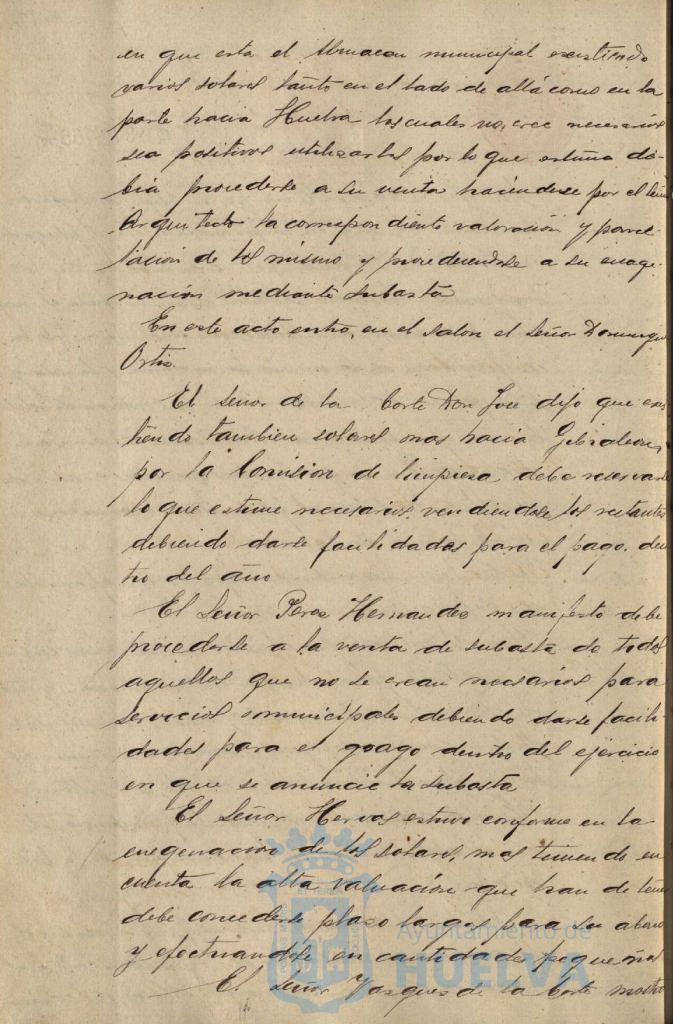 en que esta el Almacen municipal existiendo
varios solares tanto en el lado de allá como en la
parte hacia Huelva los cuales no, cree necesarios
sea positivos utilizarlos por lo que estima de-
bia procederse a su venta haciendose por el Señor
Arquitecto la correspondiente valoración y parce-
lación de los mismo y procediendose a su enage-
nación mediante subasta
En este acto entro, en el salon el Señor Dominguez
Ortiz.
El señor de la Corte Don Jose dijo que exis-
tiendo tambien solares mas hacia Gibraleon,
por la Comision de limpieza debe reservarse
lo que estime necesarios vendiendose los restantes
debiendo darse facilidades para el pago. den-
tro del año
El Señor Perez Hernandez manifesto debe
procederse a la venta de subasta de todos
aquellos que no se crean necsarios para
servicios municipales debiendo darse facili-
dades para el pago dentro del ejercicio
en que se anuncie la subasta
El Señor Hervas estuvo conforme en la
enegenacion de los solares, mas teniendo en
cuenta la alta valuación que han de tener
debe concederse plazo largos para su abono
y efectuandose en cantidades pequeñas
El Señor Vazquez de la Corte mostro
Ayuntamiento de
HUELVA